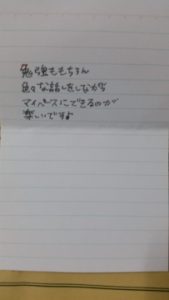 勉強ももちろん
色々な話しをしながら
マイペースにできるのが
楽しいですよ